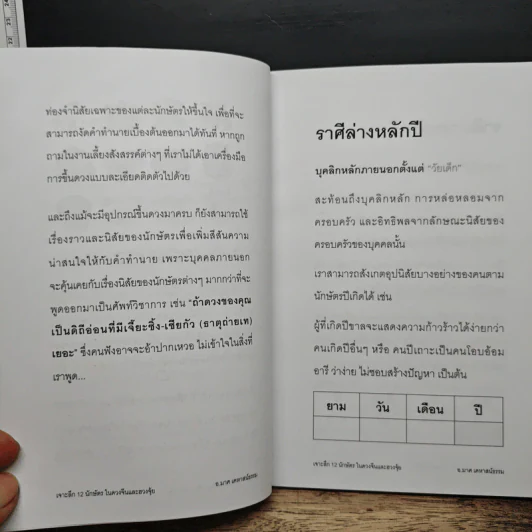 ท่องจำนิสัยเฉพาะของแต่ละนักษัตรให้ขึ้นใจ เพื่อที่จะ
สามารถงัดคำทำนายเบื้องต้นออกมาได้ทันที หากถูก
ถามในงานเลี้ยงสังสรรค์ต่างๆ ที่เราไม่ได้เอาเครื่องมือ
การขึ้นดวงแบบละเอียดติดตัวไปด้วย
และถึงแม้จะมีอุปกรณ์ขึ้นดวงมาครบ ก็ยังสามารถใช้
เรื่องราวและนิสัยของนักษัตรเพื่อเพิ่มสีสันความ
น่าสนใจให้กับคำทำนาย เพราะบุคคลภายนอก
จะคุ้นเคยกับเรื่องนิสัยของนักษัตรต่างๆ มากกว่าที่จะ
พูดออกมาเป็นศัพท์วิชาการ เช่น "ถ้าดวงของคุณ
เป็นดิถีอ่อนที่มีเจี้ยะซิ้ง-เซียกัว (ธาตุถ่ายเท)
เยอะ" ซึ่งคนฟังอาจจะอ้าปากเหวอ ไม่เข้าใจในสิ่งที่
เราพูด...
เจาะลึก 12 นักษัตร ในดวงจีนและฮวงจุ้ย
อ.มาศ เคหาสน์ธรรม
ราศีล่างหลักปี
บุคลิกหลักภายนอกตั้งแต่ "วัยเด็ก"
สะท้อนถึงบุคลิกหลัก การหล่อหลอมจาก
ครอบครัว และอิทธิพลจากลักษณะนิสัยของ
ครอบครัวของบุคคลนั้น
เราสามารถสังเกตอุปนิสัยบางอย่างของคนตาม
นักษัตรปีเกิดได้ เช่น
ผู้ที่เกิดปีขาลจะแสดงความก้าวร้าวได้ง่ายกว่า
คนเกิดปีอื่นๆ หรือ คนปีเถาะเป็นคนโอบอ้อม
อารี ว่าง่าย ไม่ชอบสร้างปัญหา เป็นต้น
ยาม วัน เดือน ปี
เจาะลึก 12 นักษัตร ในดวงจีนและฮวงจุ้ย
อ.มาศ เคหาสน์ธรรม